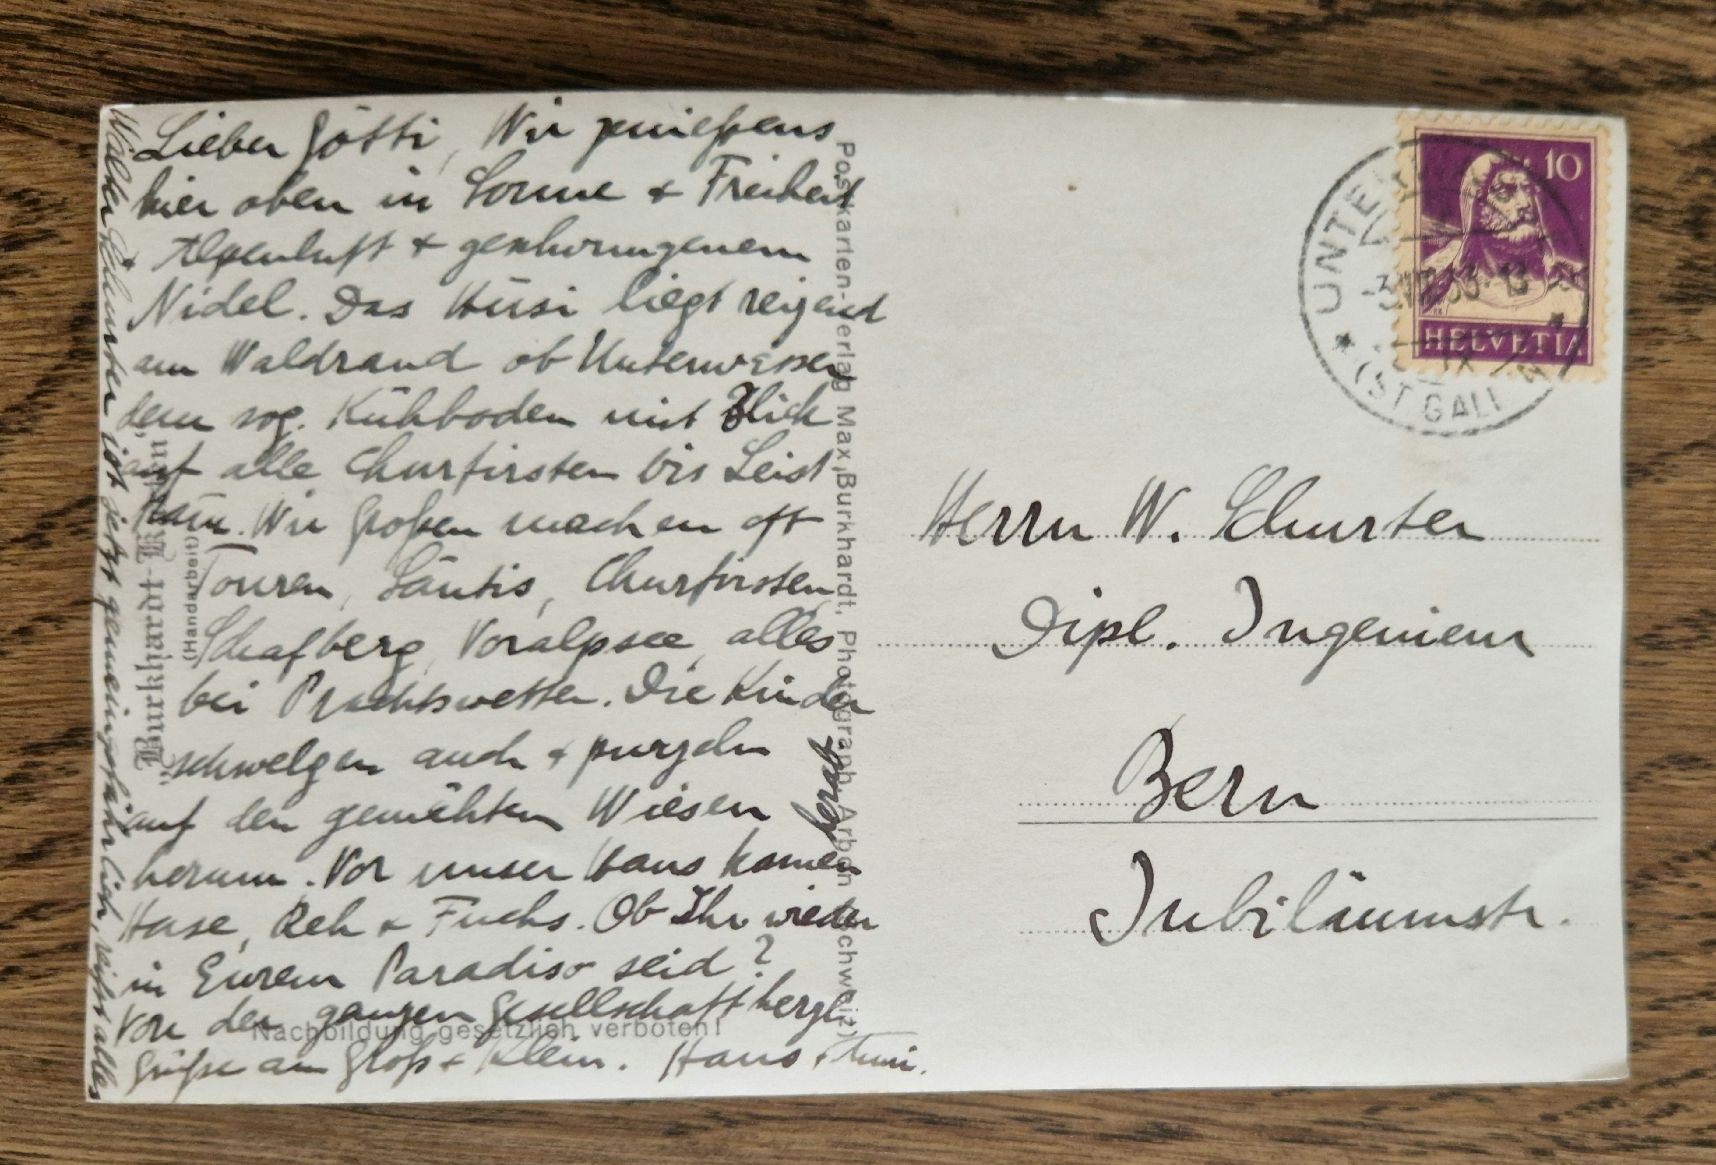 Lieber Götti, Wir geniessens
hier oben in Sonne + Freiheit
+ Alpenluft + geschwungenem
Nidel. Das Hüsi liegt reizend
am Waldrand ob Unterwasser
dem sog. Kühboden mit Blick
auf alle Churfirsten bis Leist
kam. Wir Großen machen oft
Touren, Säntis, Churfirsten,
Schafberg, Voralpsee, alles
bei Prachtswetter. Die Kinder
schwelgen auch + purzeln
auf den gemähten Wiesen
herum. Vor unser Haus kamen
Hase, Reh + Fuchs. Ob Ihr wieder
in Eurem Paradiso seid?
Von der ganzen Gesellschaft herzl.
Grüße an Groß + Klein. Hans +
Walter Schurter ist jetzt gemeingefährlich, reisst alles
"Burkhardt-
(Handarbeit)
Nachbildung gesetzlich verboten!
Postkarten-Verlag Max Burkhardt, Photograph, Arbon (Schweiz)
10
HELVETIA
(ST. GALLEN)
Herrn W. Schurter
Dipl. Ingenieur
Bern
Jubiläumstr.